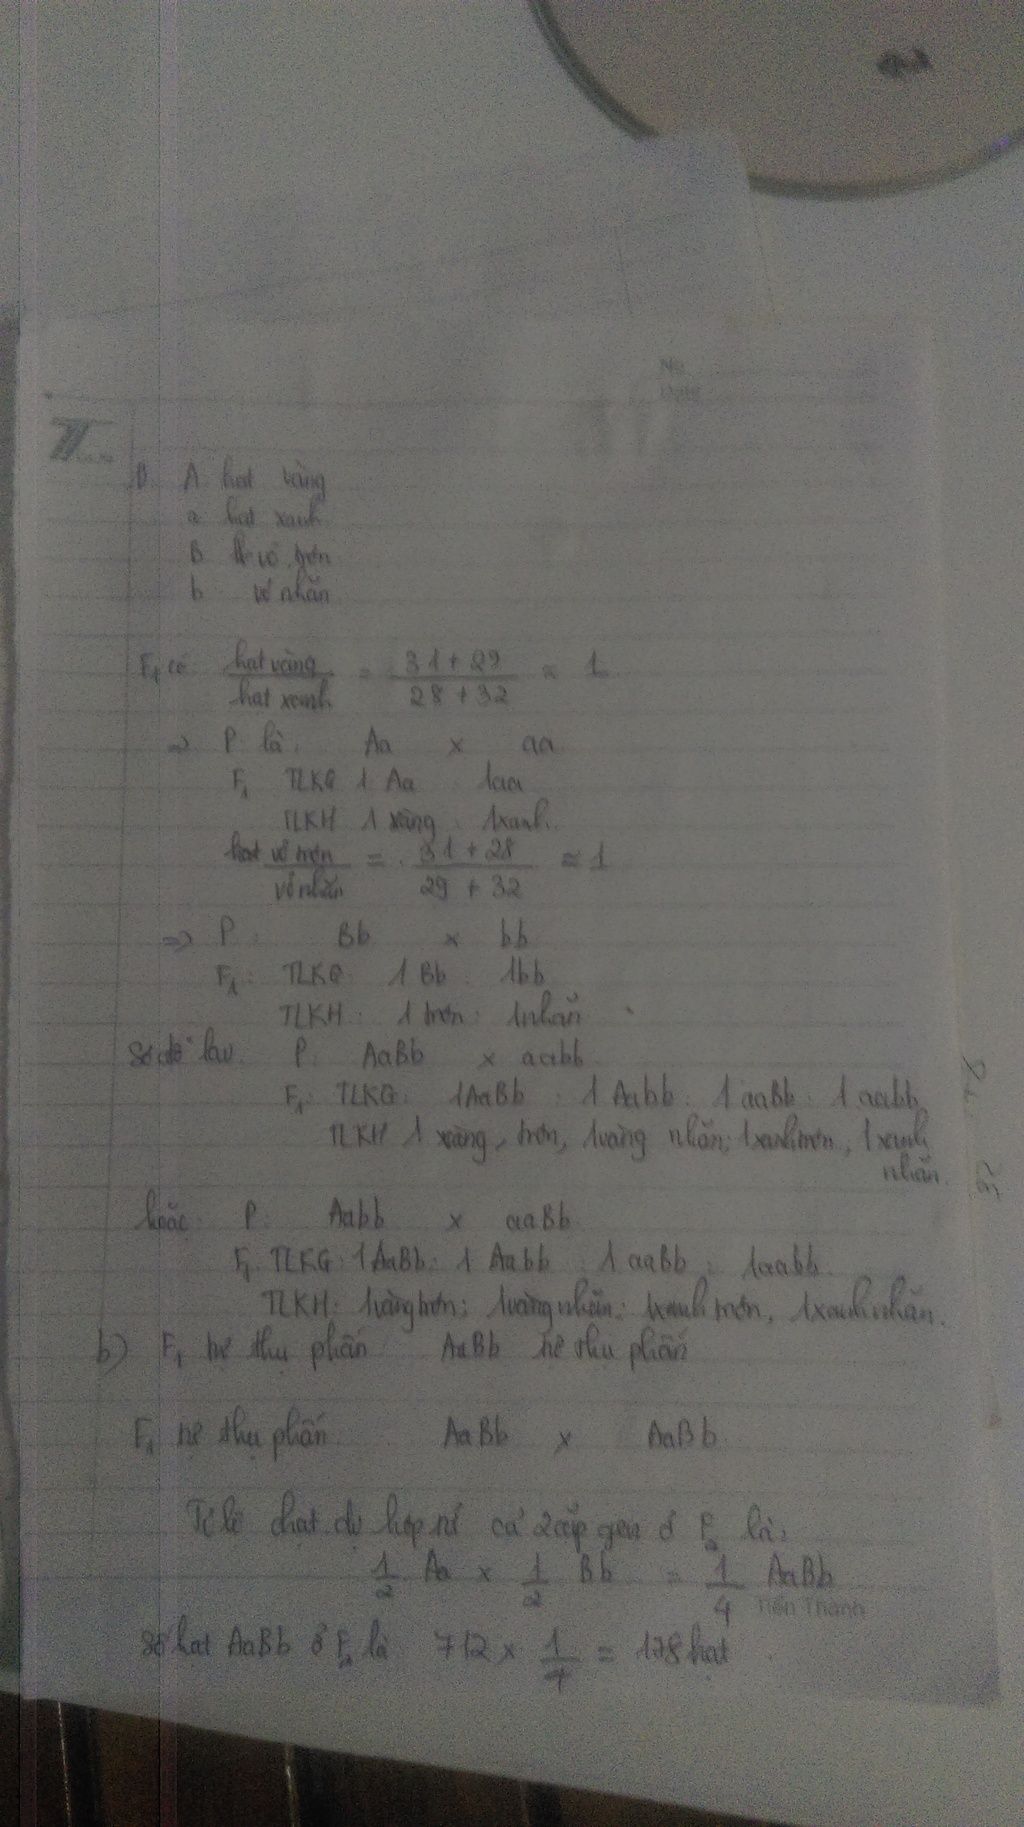 No
Date
A hạt vàng
a hạt xanh
B vỏ trơn
b vỏ nhăn
F1 có hạt vàng / hạt xanh = 31 + 29 / 28 + 32 ≈ 1
=> P là: Aa x aa
F1 TLKG 1 Aa : 1aa
TLKH 1 vàng : 1xanh.
hạt vỏ trơn / vỏ nhăn = 31 + 28 / 29 + 32 ≈ 1
=> P: Bb x bb
F1: TLKG: 1 Bb : 1bb
TLKH: 1 trơn : 1nhăn
Sơ đồ lai P: AaBb x aabb
F1: TLKG: 1AaBb : 1 Aabb : 1 aaBb : 1 aabb
TLKH 1 vàng, trơn, 1vàng nhăn, 1xanh trơn, 1xanh
nhăn.
hoặc P: Aabb x aaBb
F1 TLKG: 1AaBb: 1 Aabb : 1 aaBb : 1aabb.
TLKH: 1vàng trơn: 1vàng nhăn: 1xanh trơn, 1xanh nhăn.
b) F1 tự thụ phấn AaBb tự thụ phấn
F1 tự thụ phấn AaBb x AaBb
Tỉ lệ hạt dị hợp về cả 2 cặp gen ở F2 là:
1/2 Aa x 1/2 Bb = 1/4 AaBb
Tiến Thành
Số hạt AaBb ở F2 là 712 x 1/4 = 178 hạt